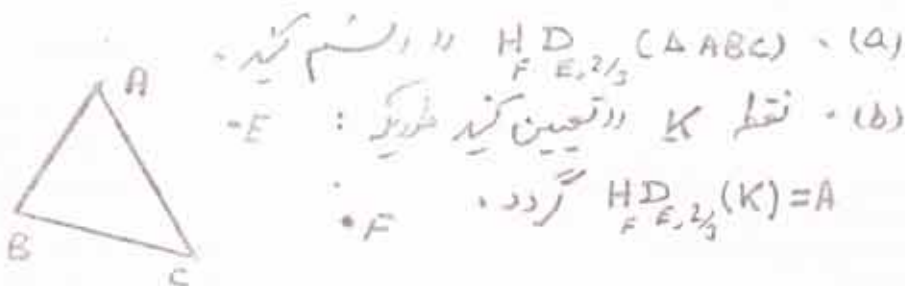 (a). H_F D_{E,2/3} (Δ ABC) را رسم کنید.
(b). نقطه K را تعیین کنید طوریکه:
H_F D_{E,2/3} (K) = A گردد.
A
B
C
E
F